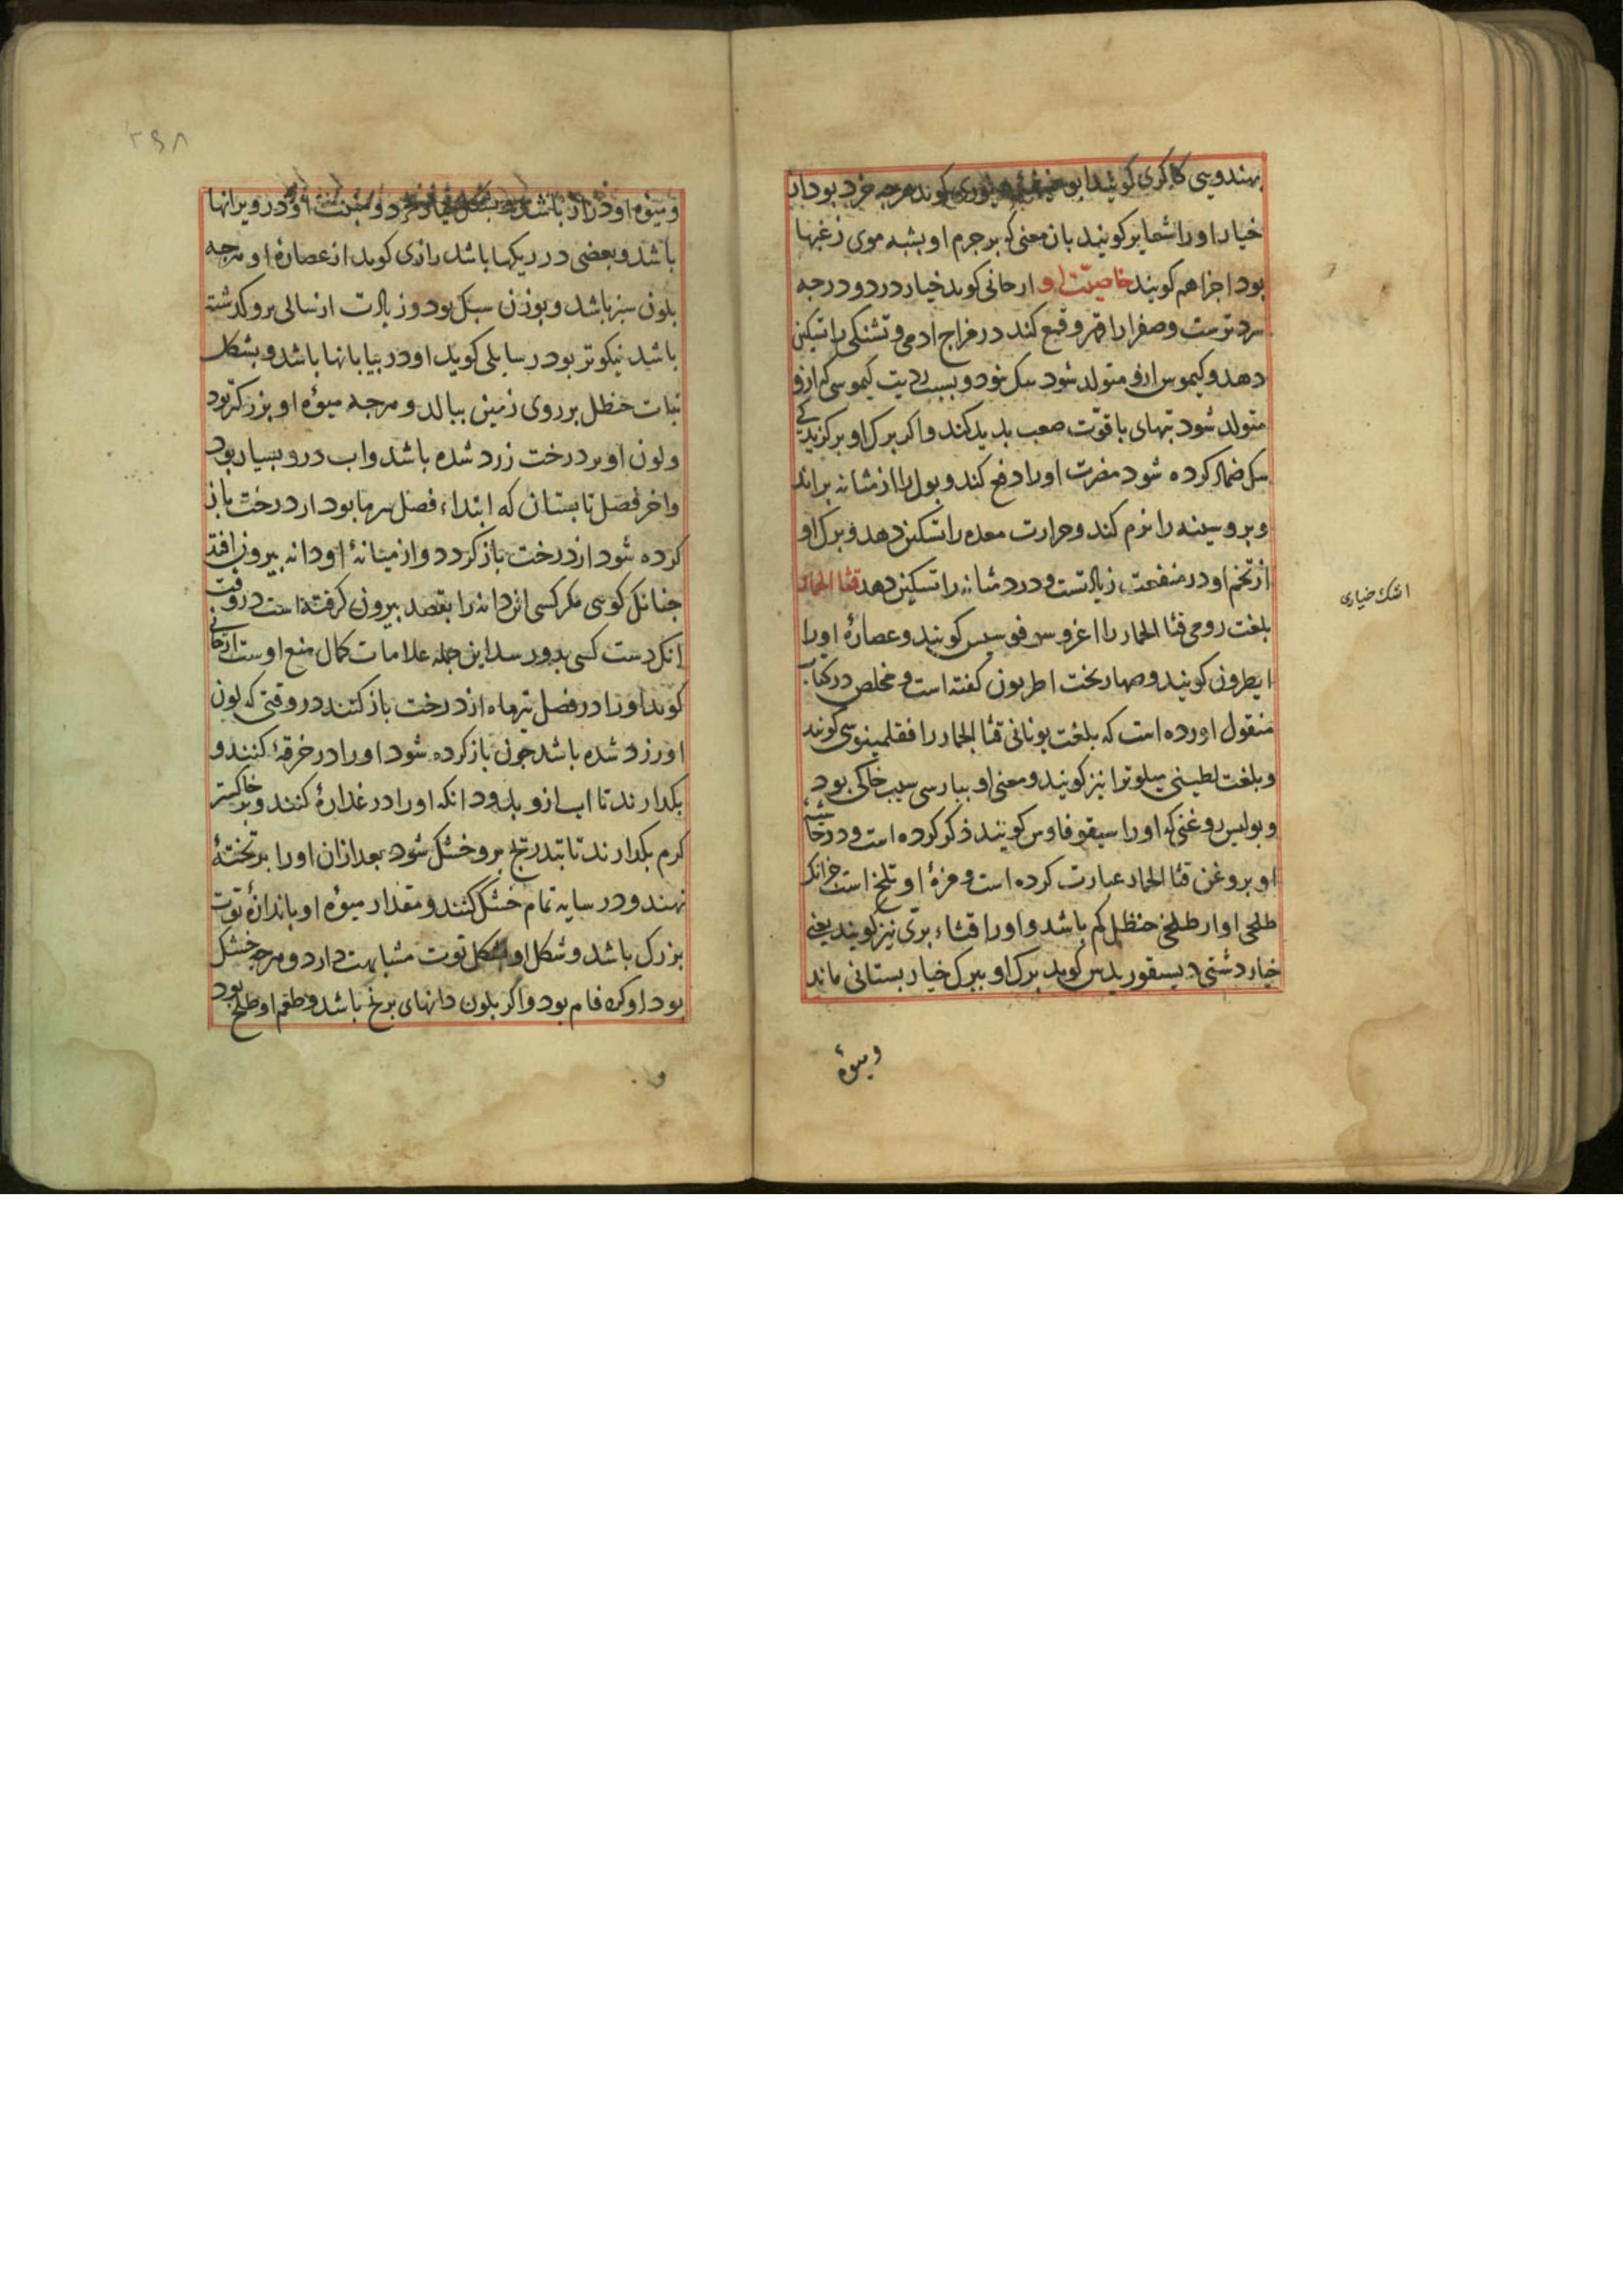 بهندوسی کاکری کویند ابو کوید هرجه خرد بود از
خیار اورا شعایر کویند بان معنی که بر جرم او بشبه موی زغبها
بود اجزا هم کویند خاصیّت او ارجانی کوید خیار در دو درجه
سرد ترست وصفرا را قهر وقمع کند در مزاج ادمی وتشنکی را تسکین
دهد وکیموس ازو متولد شود سبک نبود وبسبب ردیت کیموسی که ازو
متولد شود تبهای با قوّت صعب بدید کند واکر برک او بر کزیدکی
سک ضماد کرده شود مضرت اورا دفع کند وبول را از مثانه براند
وبر وسینه را نرم کند وحرارت معده را تسکین دهد وبرک او
از تخم او در منفعت زیادتست ودرد مثانه را تسکین دهد قثا الحمار
بلغت رومی قثا الحمار را اغروس فوسیس کویند وعصارهٔ اورا
ایطرون کویند وصهاربخت اطربون کفته است ومخلص در کتاب
منقول اورده است که بلغت یونانی قثا الحمار را فقلمینوسی کویند
وبلغت لطینی میلوترا نیز کویند ومعنی او ببارسی سیب خاکی بود
وبولیس روغنی که اورا سیقوفاوس کویند ذکر کرده است ودر حاشیه
او بروغن قثا الحمار عبارت کرده است ومزهٔ او تلخ است جزانک
طلخی او از طلخی حنظل کم باشد واورا قثاء برّی نیز کویند یعنی
خیار دشتی دیسقوریدس کوید برک او ببرک خیار بستانی ماند
ومیوهٔ
اشک خیاری
۲۹۸
ومیوه او دراز باشد بشکل خرد ومنبت او در ویرانها
باشد وبعضی در ریکها باشد رازی کوید از عصارهٔ او هرجه
بلون سبز باشد وبوزن سبک بود وزیادت از سالی برو کذشته
باشد نیکوتر بود رسایلی کوید او در بیابانها باشد وبشکل
نبات حنظل بر روی زمین ببالد وهرجه میوهٔ او بزرکتر بود
ولون او بر درخت زرد شده باشد واب درو بسیار بود
واخر فصل تابستان که ابتداء فصل سرما بود از درخت باز
کرده شود از درخت باز کردد واز میانهٔ او دانه بیرون افتد
جنانک کوسی مکر کسی ان دانه را بقصد بیرون کرفته است در وقت
انک دست کسی بدو رسد این جمله علامات کمال منع اوست ارجانی
کوید اورا در فصل تیرماه از درخت باز کنند در وقتی که لون
او زرد شده باشد جون باز کرده شود اورا در خرقهٔ کنند و
بکذارند تا اب ازو بدود انکه اورا در غدارهٔ کنند وبر خاکستر
کرم بکذارند تا بتدریج برو خشک شود بعد ازان اورا بر تختهٔ
نهند ودر سایه تمام خشک کنند ومقدار میوهٔ او باندازهٔ توت
بزرک باشد وشکل او بشکل توت مشابهت دارد وهرجه خشک
بود او کره فام بود واکر بلون دانهای برنج باشد وطعم او طلخ بود
و